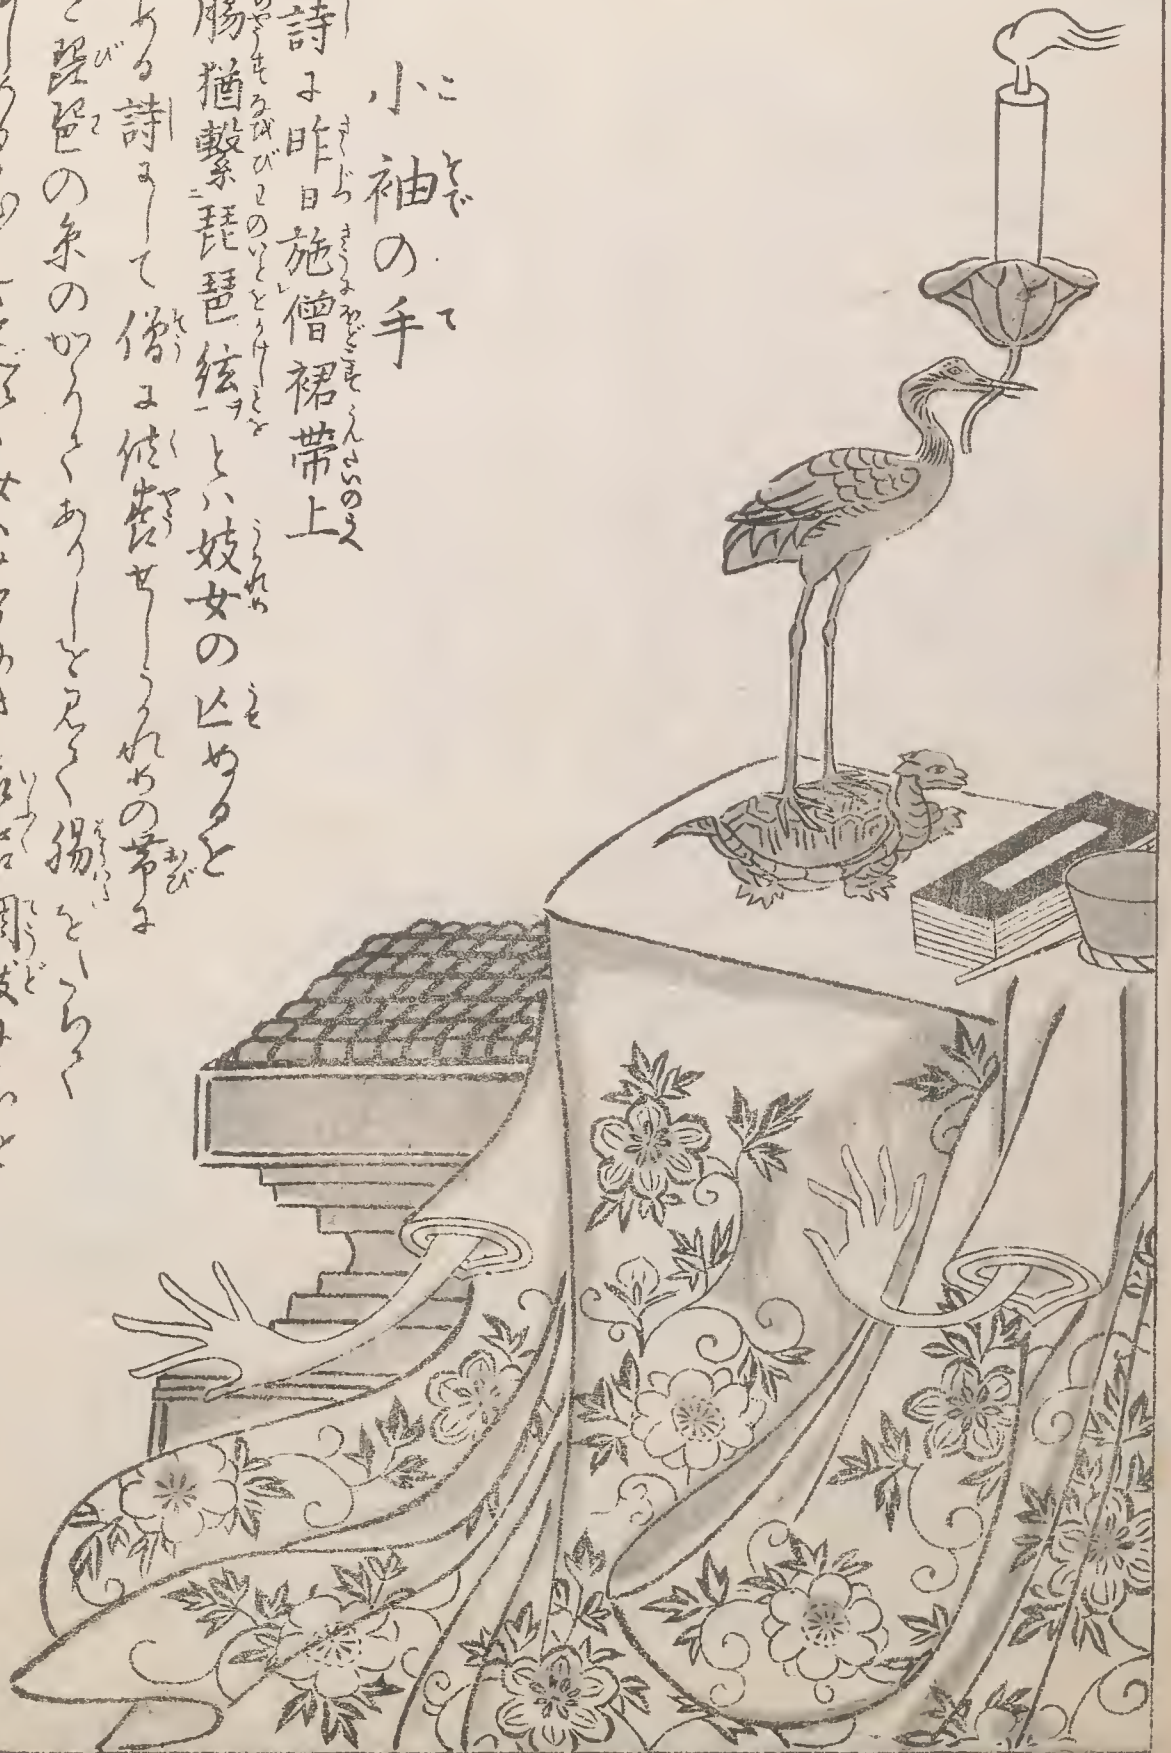 小袖の手
詩に昨日施僧裙帯上
腸猶繋琵琶絃とハ妓女の亡ぬるを
める詩にして僧に供養せしうかれめの帯に
琵琶の糸のかゝりてありしを見て腸をたちて